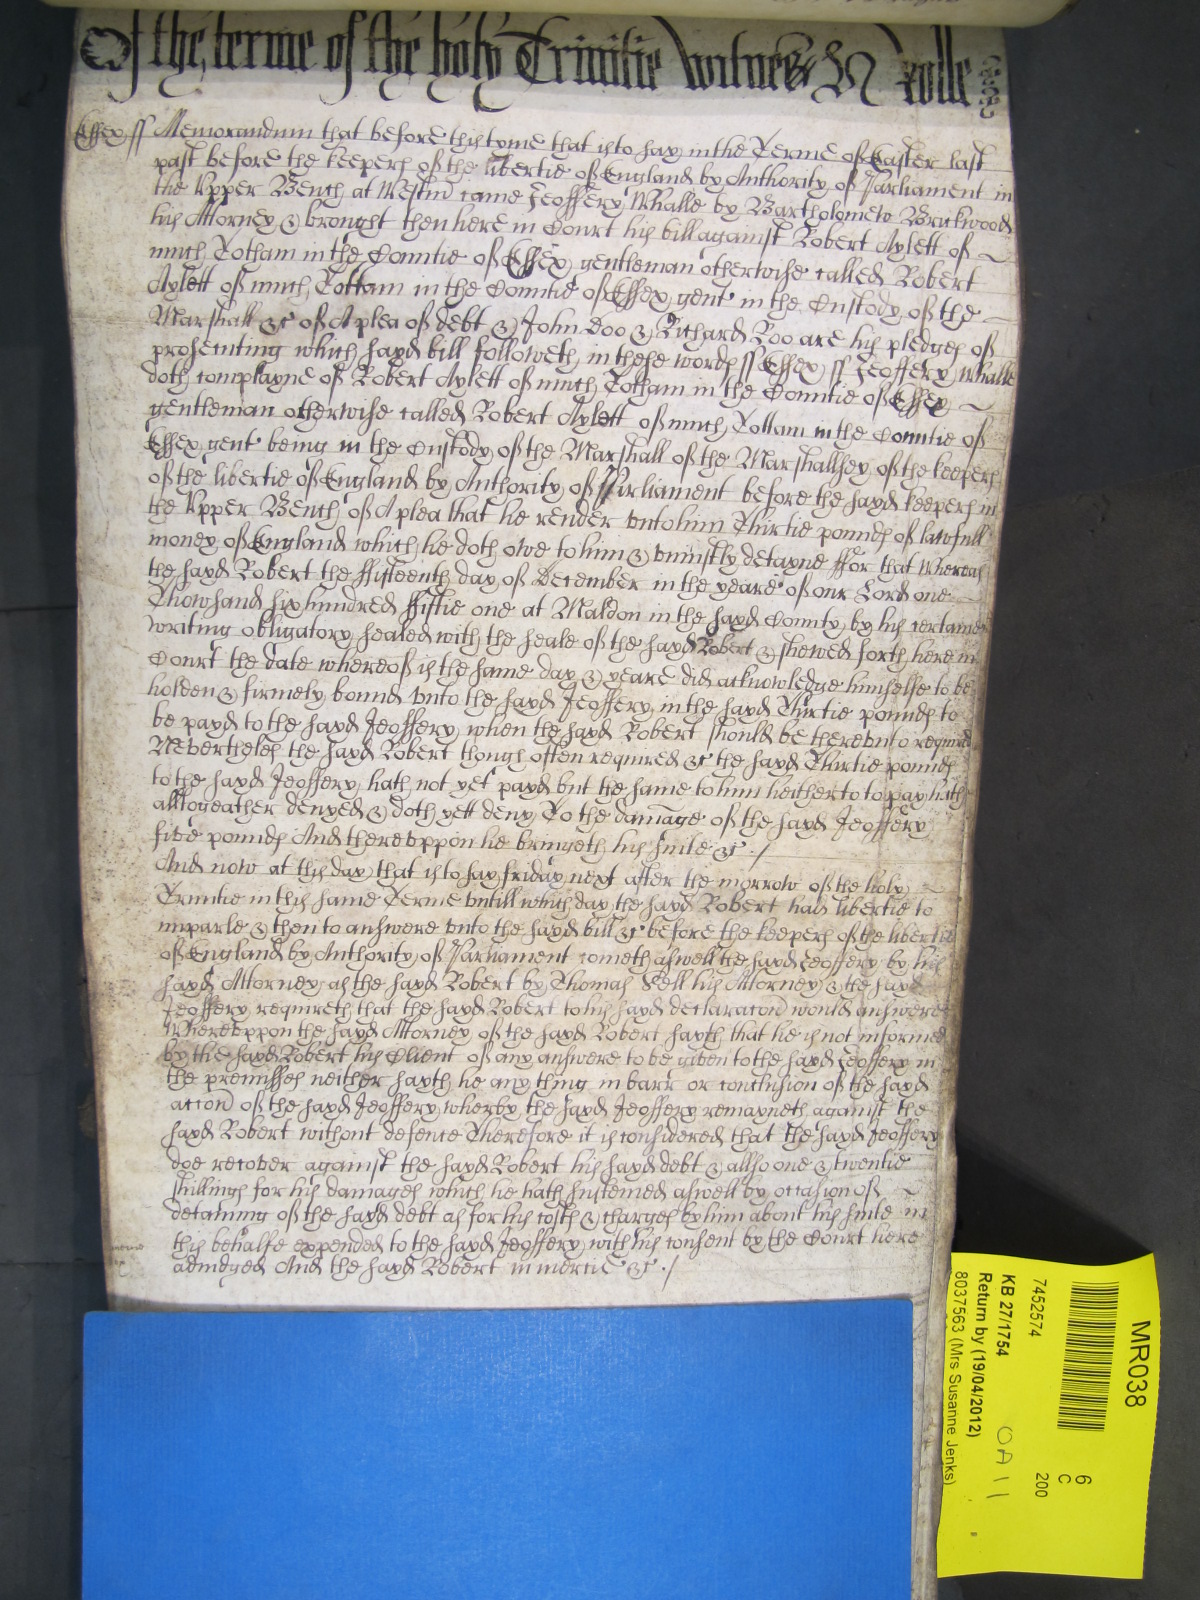 Of the terme of the holy Trinitie witnes H Rolle
Essex ss Memorandum that before this tyme that is to say in the Terme of Easter last
past before the keepers of the libertie of England by Authority of Parliament in
the Upper Bench at Westm̄ came Jeoffery Whalle by Bartholomew Bruckwood
his Attorney & brought then here in Court his bill against Robert Aylett of
much Totham in the Countie of Essex gentleman otherwise called Robert
Aylett of much Tottam in the Countie of Essex gent in the Custody of the
Marshall &c of A plea of debt & John Doo & Richard Roo are his pledges of
prosecuting which sayd bill followeth in these words ss Essex ss Jeoffery Whalle
doth complayne of Robert Aylett of much Totham in the Countie of Essex
gentleman otherwise called Robert Aylett of much Tottam in the Countie of
Essex gent being in the Custody of the Marshall of the Marshallsey of the keepers
of the libertie of England by Authority of Parliament before the sayd keepers in
the Upper Bench of A plea that he render vnto him Thirtie pounds of lawfull
money of England which he doth owe to him & vniustly detayne ffor that Whereas
the sayd Robert the ffifteenth day of December in the yeare of our Lord one
Thowsand six hundred ffiftie one at Maldon in the sayd County by his certaine
writing obligatory sealed with the seale of the sayd Robert & shewed forth here in
Court the date whereof is the same day & yeare did acknowledge himselfe to be
holden & firmely bound vnto the sayd Jeoffery in the sayd Thirtie pounds to
be payd to the sayd Jeoffery when the sayd Robert should be therevnto required
Neverthelesse the sayd Robert though often required &c the sayd Thirtie pounds
to the sayd Jeoffery hath not yet payd but the same to him hitherto to pay hath
alltogeather denyed & doth yett deny To the damage of the sayd Jeoffery
five pounds And therevppon he bringeth his suite &c ./
And now at this day that is to say friday next after the morrow of the holy
Trinitie in this same Terme vntill which day the sayd Robert had libertie to
imparle & then to answere vnto the sayd bill &c before the keepers of the libertie
of England by Authority of Parliament cometh aswell the sayd Jeoffery by his
sayd Attorney as the sayd Robert by Thomas Fell his Attorney & the sayd
Jeoffery requireth that the sayd Robert to his sayd declaracōn would answere
Wherevppon the sayd Attorney of the sayd Robert sayth that he is not informed
by the sayd Robert his Client of any answere to be given to the sayd Jeoffery in
the premisses neither sayth he any thing in barr or conclusion of the sayd
accōn of the sayd Jeoffery wherby the sayd Jeoffery remayneth against the
sayd Robert without defence Therefore it is considered that the sayd Jeoffery
doe recover against the sayd Robert his sayd debt & allso one & twentie
shillings for his damages which he hath susteined aswell by occasion of
detaining of the sayd debt as for his costs & charges by him about his suite in
this behalfe expended to the sayd Jeoffery with his consent by the Court here
adiudged And the sayd Robert in mercie &c ./
MR038
7452574
6
C
200
KB 27/1754
Return by (19/04/2012)
8037563 (Mrs Susanne Jenks)
OA 11